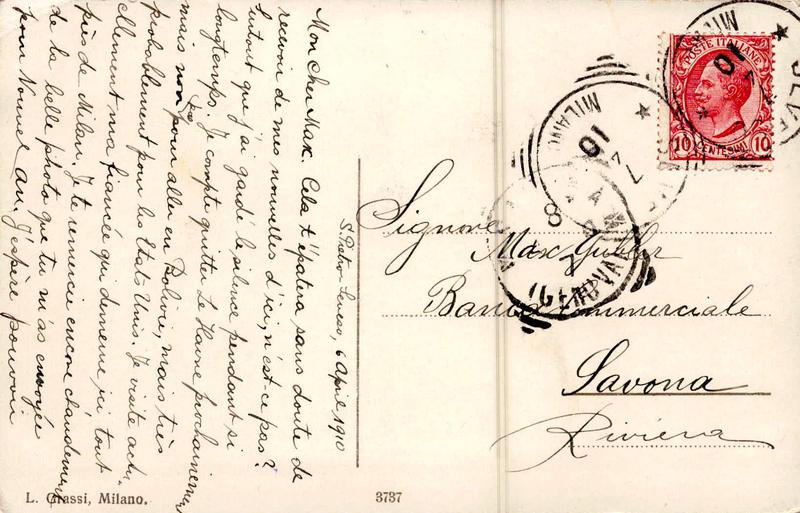 S. Pietro Seveso, 6 April 1910
Mon cher Max. Cela t'épatera sans doute de
recevoir de mes nouvelles d'ici, n'est-ce pas?
Surtout que j'ai gardé le silence pendant si
longtemps. Je compte quitter Le Havre prochainement
mais non pour aller en Bolivie, mais très
probablement pour les Etats Unis. Je visite actu-
ellement ma fiancée qui demeure ici tout
près de Milan. Je te remercie encore chaudement
de la belle photo que tu m'as envoyée
pour Nouvel an. J'espère pouvoir
L. Grassi, Milano.
3737
POSTE ITALIANE
10 CENTESIMI 10
MILANO
10
GENOVA
Signore
Max Gubler
Banca Commerciale
Savona
Riviera